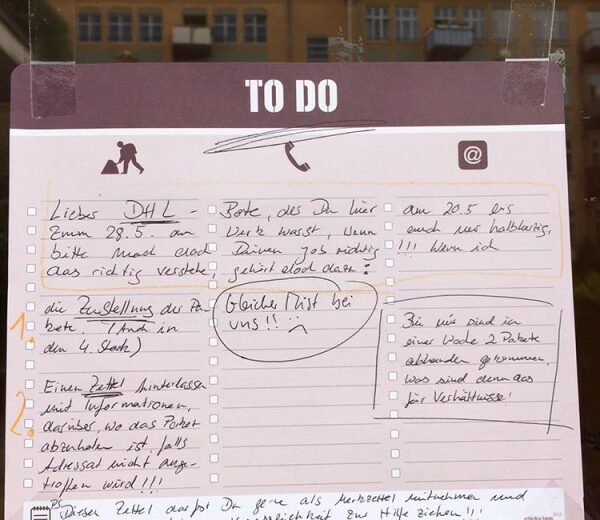 TO DO
Lieber DHL - Bote, des Du hier am 20.5 bis
zum 28.5. am Werk warst, wenn auch nur halbherzig,
bitte mach doch Deinen Job richtig !!! Wenn ich
das richtig verstehe, gehört doch dazu:
1.
die Zustellung der Pa-
kete. (Auch in
den 4. Stock)
2.
Einen Zettel hinterlassen
mit Informationen,
darüber, wo das Paket
abzuholen ist, falls
Adressat nicht ange-
troffen wird!!!
Gleicher Mist bei
uns!!
Bei mir sind in
einer Woche 2 Pakete
abhanden gekommen,
was sind denn das
für Verhältnisse!
Diesen Zettel darfst Du gerne als Merkzettel mitnehmen und
zur Hilfe ziehen!!!